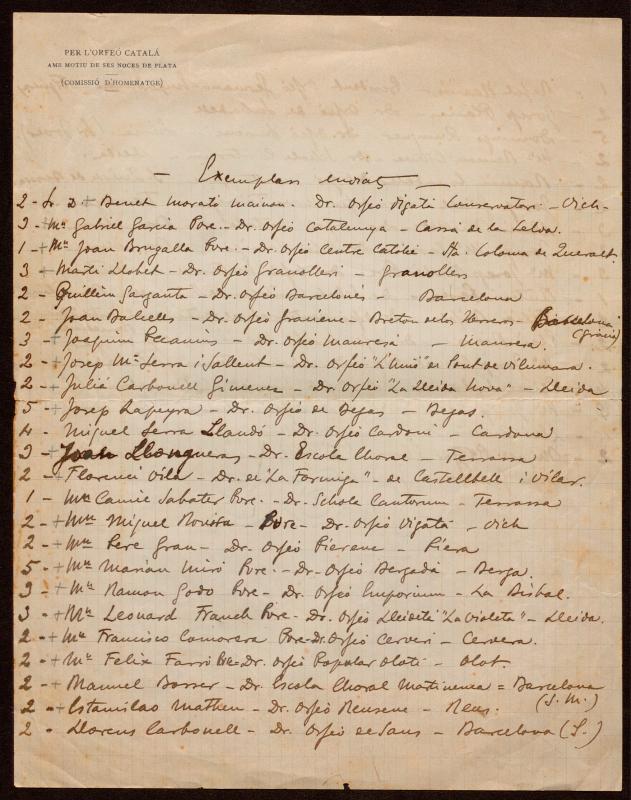 PER L'ORFEÓ CATALÁ
AMB MOTIU DE SES NOCES DE PLATA
(COMISSIÓ D'HOMENATGE)
— Exemplars enviats —
2 - Sr. D. + Benet Morató Mainou. Dr. Orfeó Vigatá Conservatori - Vich -
3 - + Mn Gabriel Garcia Pvre. - Dr. Orfeó Catalunya - Cassá de la Selva.
1 - + Mn Joan Brugalla Pvre. - Dr. Orfeó Centre Católic - Sta. Coloma de Queralt.
3 - + Martí Llobet - Dr. Orfeó Granollerí - Granollers
2 - Guillém Garganta - Dr. Orfeó Barcelonés - Barcelona
2 - Joan Balcells - Dr. Orfeó Gracienc - Breton dels Herreros - Barcelona
(Gracia)
3 - + Joaquim Pecanins - Dr. Orfeó Manresá - Manresa.
2 - Josep Mª Serra i Sallent - Dr. Orfeó "L'Unió" de Pont de Vilumara.
2 - Juliá Carbonell Gimenez - Dr. Orfeó "La Lleida Nova" - Lleida
5 - + Josep Lapeyra - Dr. Orfeó de Begas - Begas.
4 - Miguel Serra Llandó - Dr. Orfeó Cardoní - Cardona
3 + Joan Llongueras - Dr. Escola Choral - Terrassa
2 - + Florenci Vila - Dr. de "La Formiga" - de Castellbell i Vilar.
1 - Mn Camil Sabater Pvre. - Dr. Schola Cantorum - Terrassa
2 - + Mn Miguel Rovira - Pvre - Dr. Orfeó Vigatá - Vich
2 - + Mn Pere Grau - Dr. Orfeó Pierenc - Piera
5 - + Mn Marian Miró Pvre. - Dr. Orfeó Bergadá - Berga.
3 - + Mn Ramon Godo Pvre - Dr. Orfeó Emporium - La Bisbal.
3 - + Mn Leonard Franch Pvre - Dr. Orfeó Lleidetá "La Violeta" - Lleida.
2 - + Mn Francisco Camorera Pvre - Dr. Orfeó Cerverí - Cervera.
2 - + Mn Felix Farró Pvre - Dr. Orfeó Popular Olotí - Olot.
2 - + Manuel Bosser - Dr. Escola Choral Martinenca = Barcelona
(S. M.)
2 - + Estanislao Mateu - Dr. Orfeó Reusenc - Reus.
2 - Llorens Carbonell - Dr. Orfeó de Sans - Barcelona (S.)